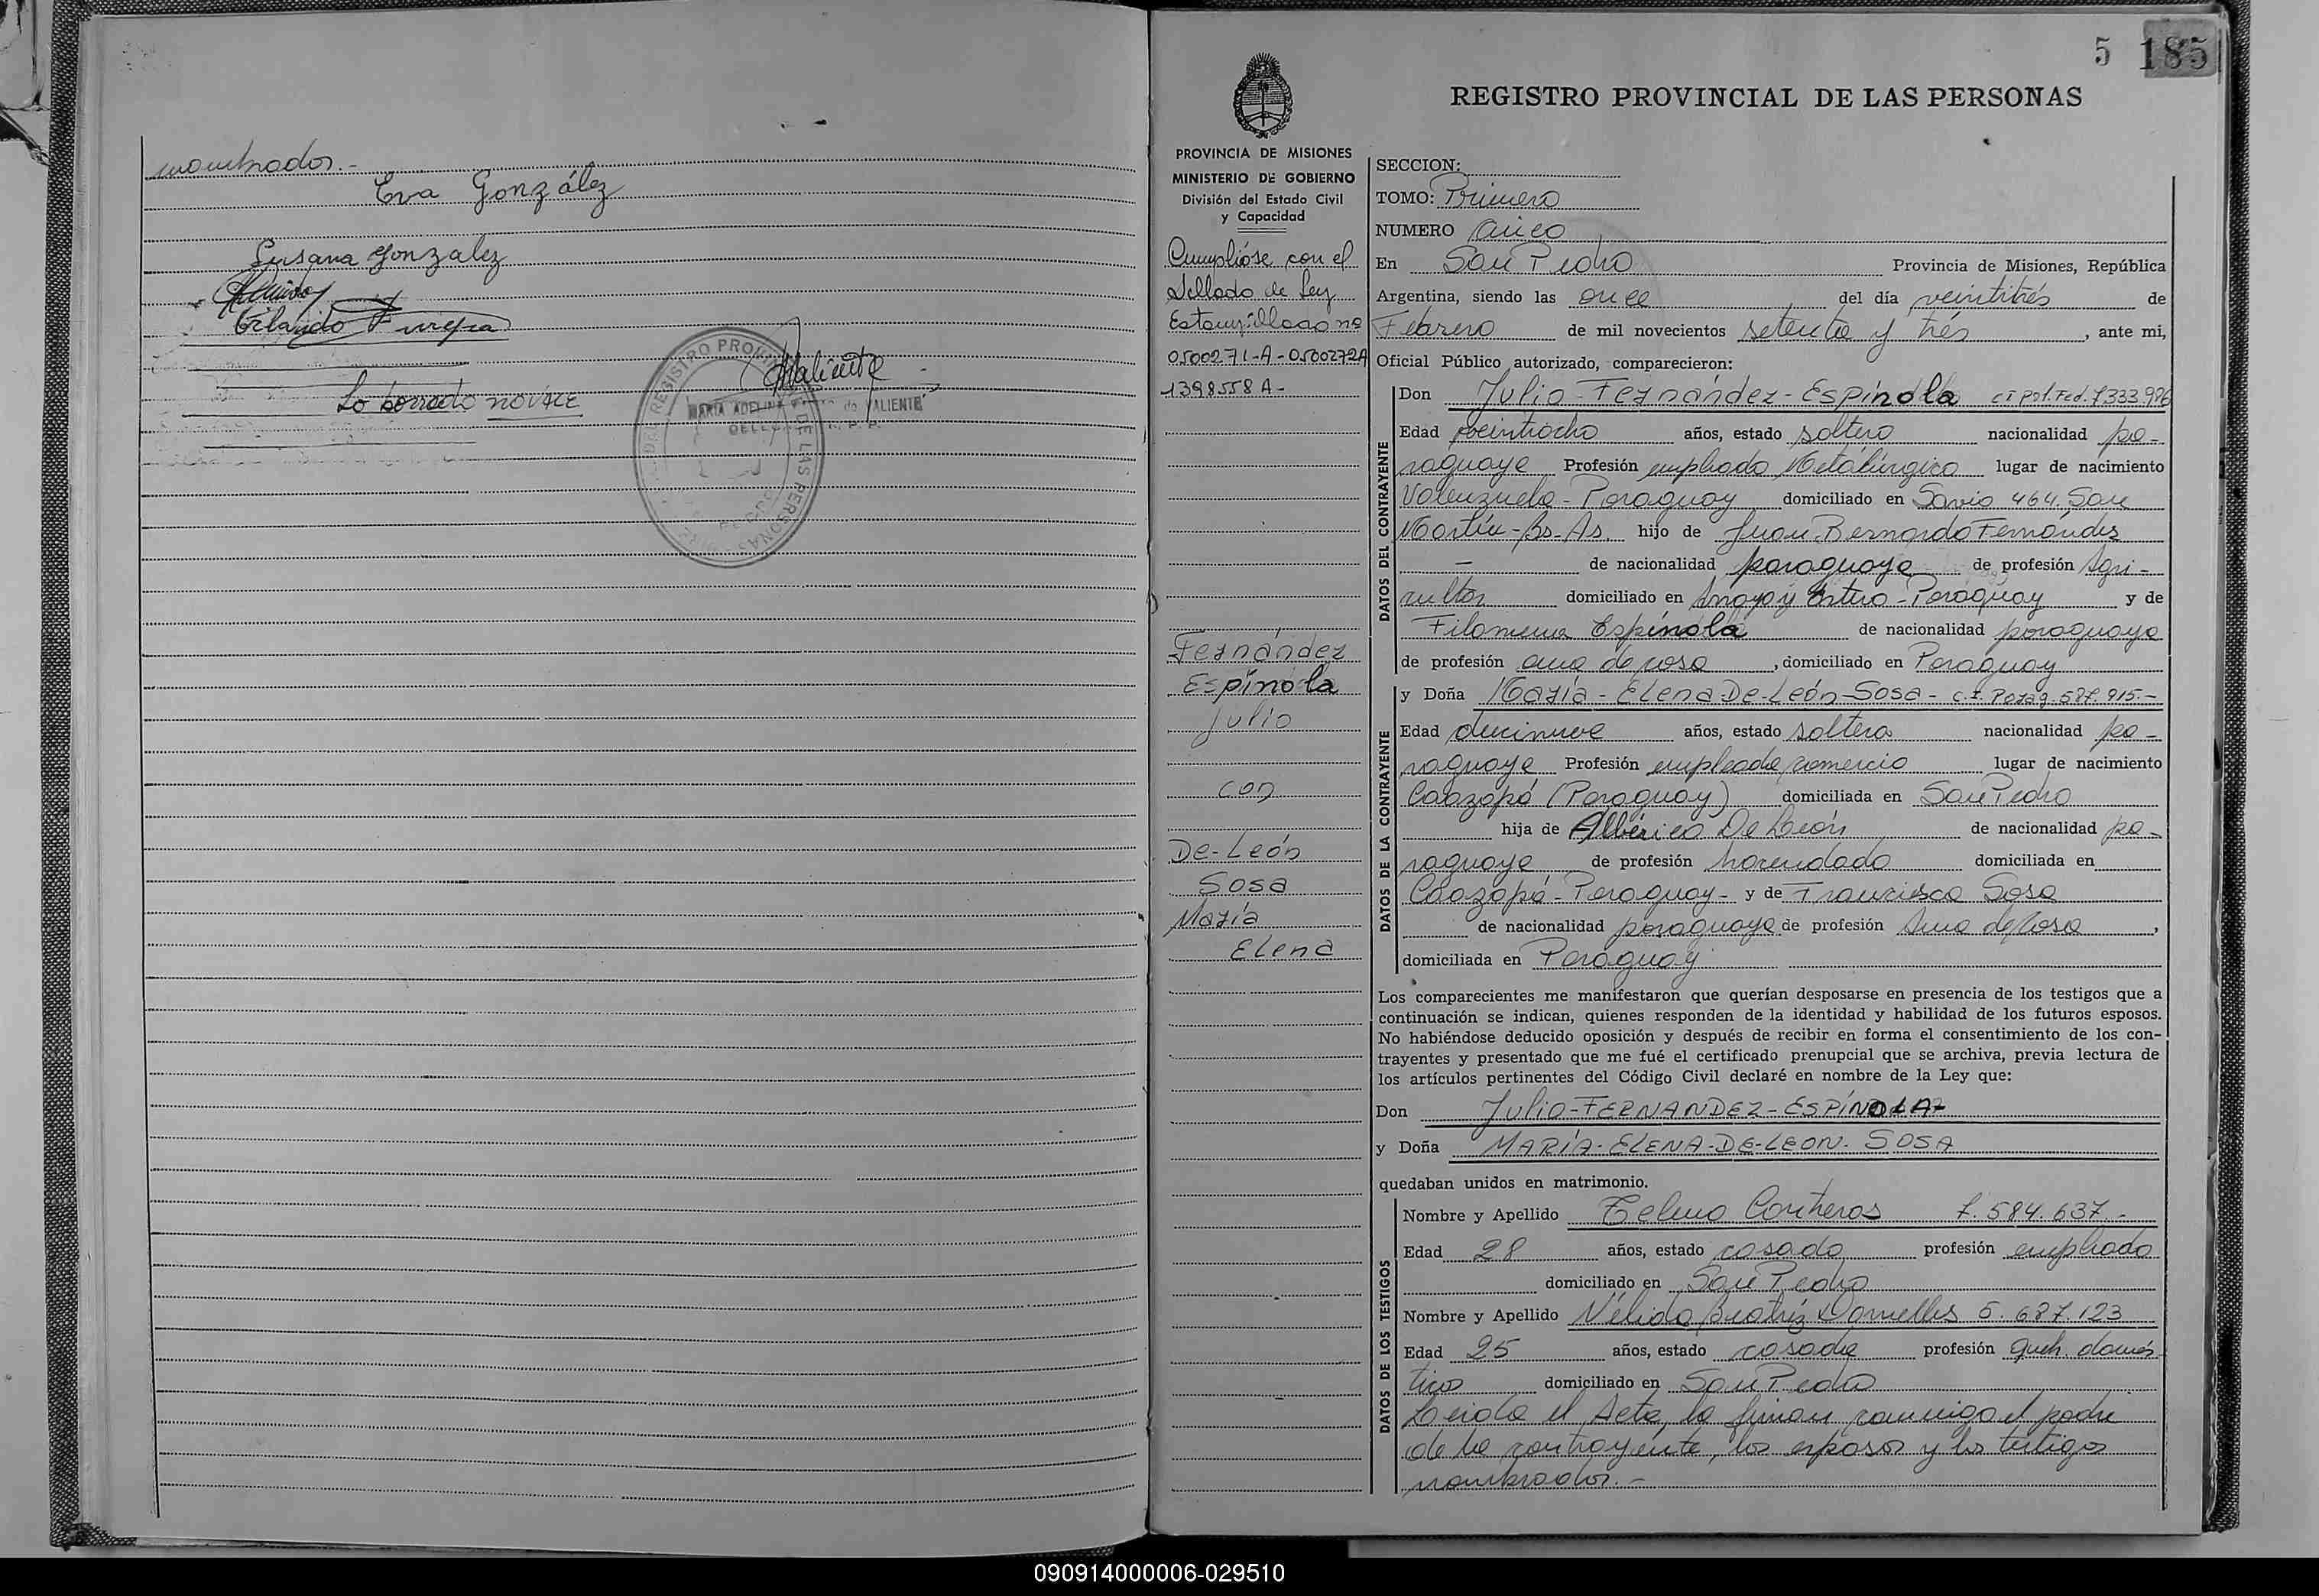 nombrados.-
Eva González
Susana Gonzalez
Lo borrado NO VALE
Valiente
REGISTRO PROVINCIAL DE LAS PERSONAS
MARIA ADELINA de VALIENTE
5 185
REGISTRO PROVINCIAL DE LAS PERSONAS
PROVINCIA DE MISIONES
MINISTERIO DE GOBIERNO
División del Estado Civil
y Capacidad
Cumplióse con el
Sellado de Ley
Estampillado nº
0500271-A-0500272A
1398558 A-
Fernández
Espínola
Julio
con
De-León
Sosa
María
Elena
SECCION:
TOMO: Primero
NUMERO Cinco
En San Pedro Provincia de Misiones, República
Argentina, siendo las once del día veintitrés de
Febrero de mil novecientos setenta y trés, ante mi,
Oficial Público autorizado, comparecieron:
DATOS DEL CONTRAYENTE
Don Julio-Fernández-Espínola CI Pol. Fed. 7333.996
Edad veintiocho años, estado soltero nacionalidad pa-
raguaya Profesión empleado Metalúrgico lugar de nacimiento
Valenzuela-Paraguay domiciliado en Savio 464. San
Martín-Bs-As. hijo de Juan Bernardo Fernández
- de nacionalidad paraguaya de profesión Agri-
cultor domiciliado en Arroyo y Estero-Paraguay y de
Filomena Espínola de nacionalidad paraguaya
de profesión ama de casa, domiciliado en Paraguay
DATOS DE LA CONTRAYENTE
y Doña María-Elena-De-León-Sosa- C.I. Parag. 587.915.-
Edad diecinueve años, estado soltera nacionalidad pa-
raguaya Profesión empleada comercio lugar de nacimiento
Caazapá (Paraguay) domiciliada en San Pedro
hija de Albérico De León de nacionalidad pa-
raguaya de profesión hacendado domiciliada en
Caazapá-Paraguay- y de Francisca Sosa
de nacionalidad paraguaya de profesión Ama de Casa,
domiciliada en Paraguay
Los comparecientes me manifestaron que querían desposarse en presencia de los testigos que a
continuación se indican, quienes responden de la identidad y habilidad de los futuros esposos.
No habiéndose deducido oposición y después de recibir en forma el consentimiento de los con-
trayentes y presentado que me fué el certificado prenupcial que se archiva, previa lectura de
los artículos pertinentes del Código Civil declaré en nombre de la Ley que:
Don Julio-FERNANDEZ-ESPÍNOLA-
y Doña MARÍA-ELENA-DE-LEON-SOSA
quedaban unidos en matrimonio.
DATOS DE LOS TESTIGOS
Nombre y Apellido Telmo Contreras 7.584.637-
Edad 28 años, estado casado profesión empleado
domiciliado en San Pedro
Nombre y Apellido Nélida Beatríz Dornelles 5.687.123
Edad 25 años, estado casada profesión queh. domés-
ticos domiciliado en San Pedro
Leida el Acta, la firman conmigo el padre
de la contrayente, los esposos y los testigos
nombrados.-
090914000006-029510